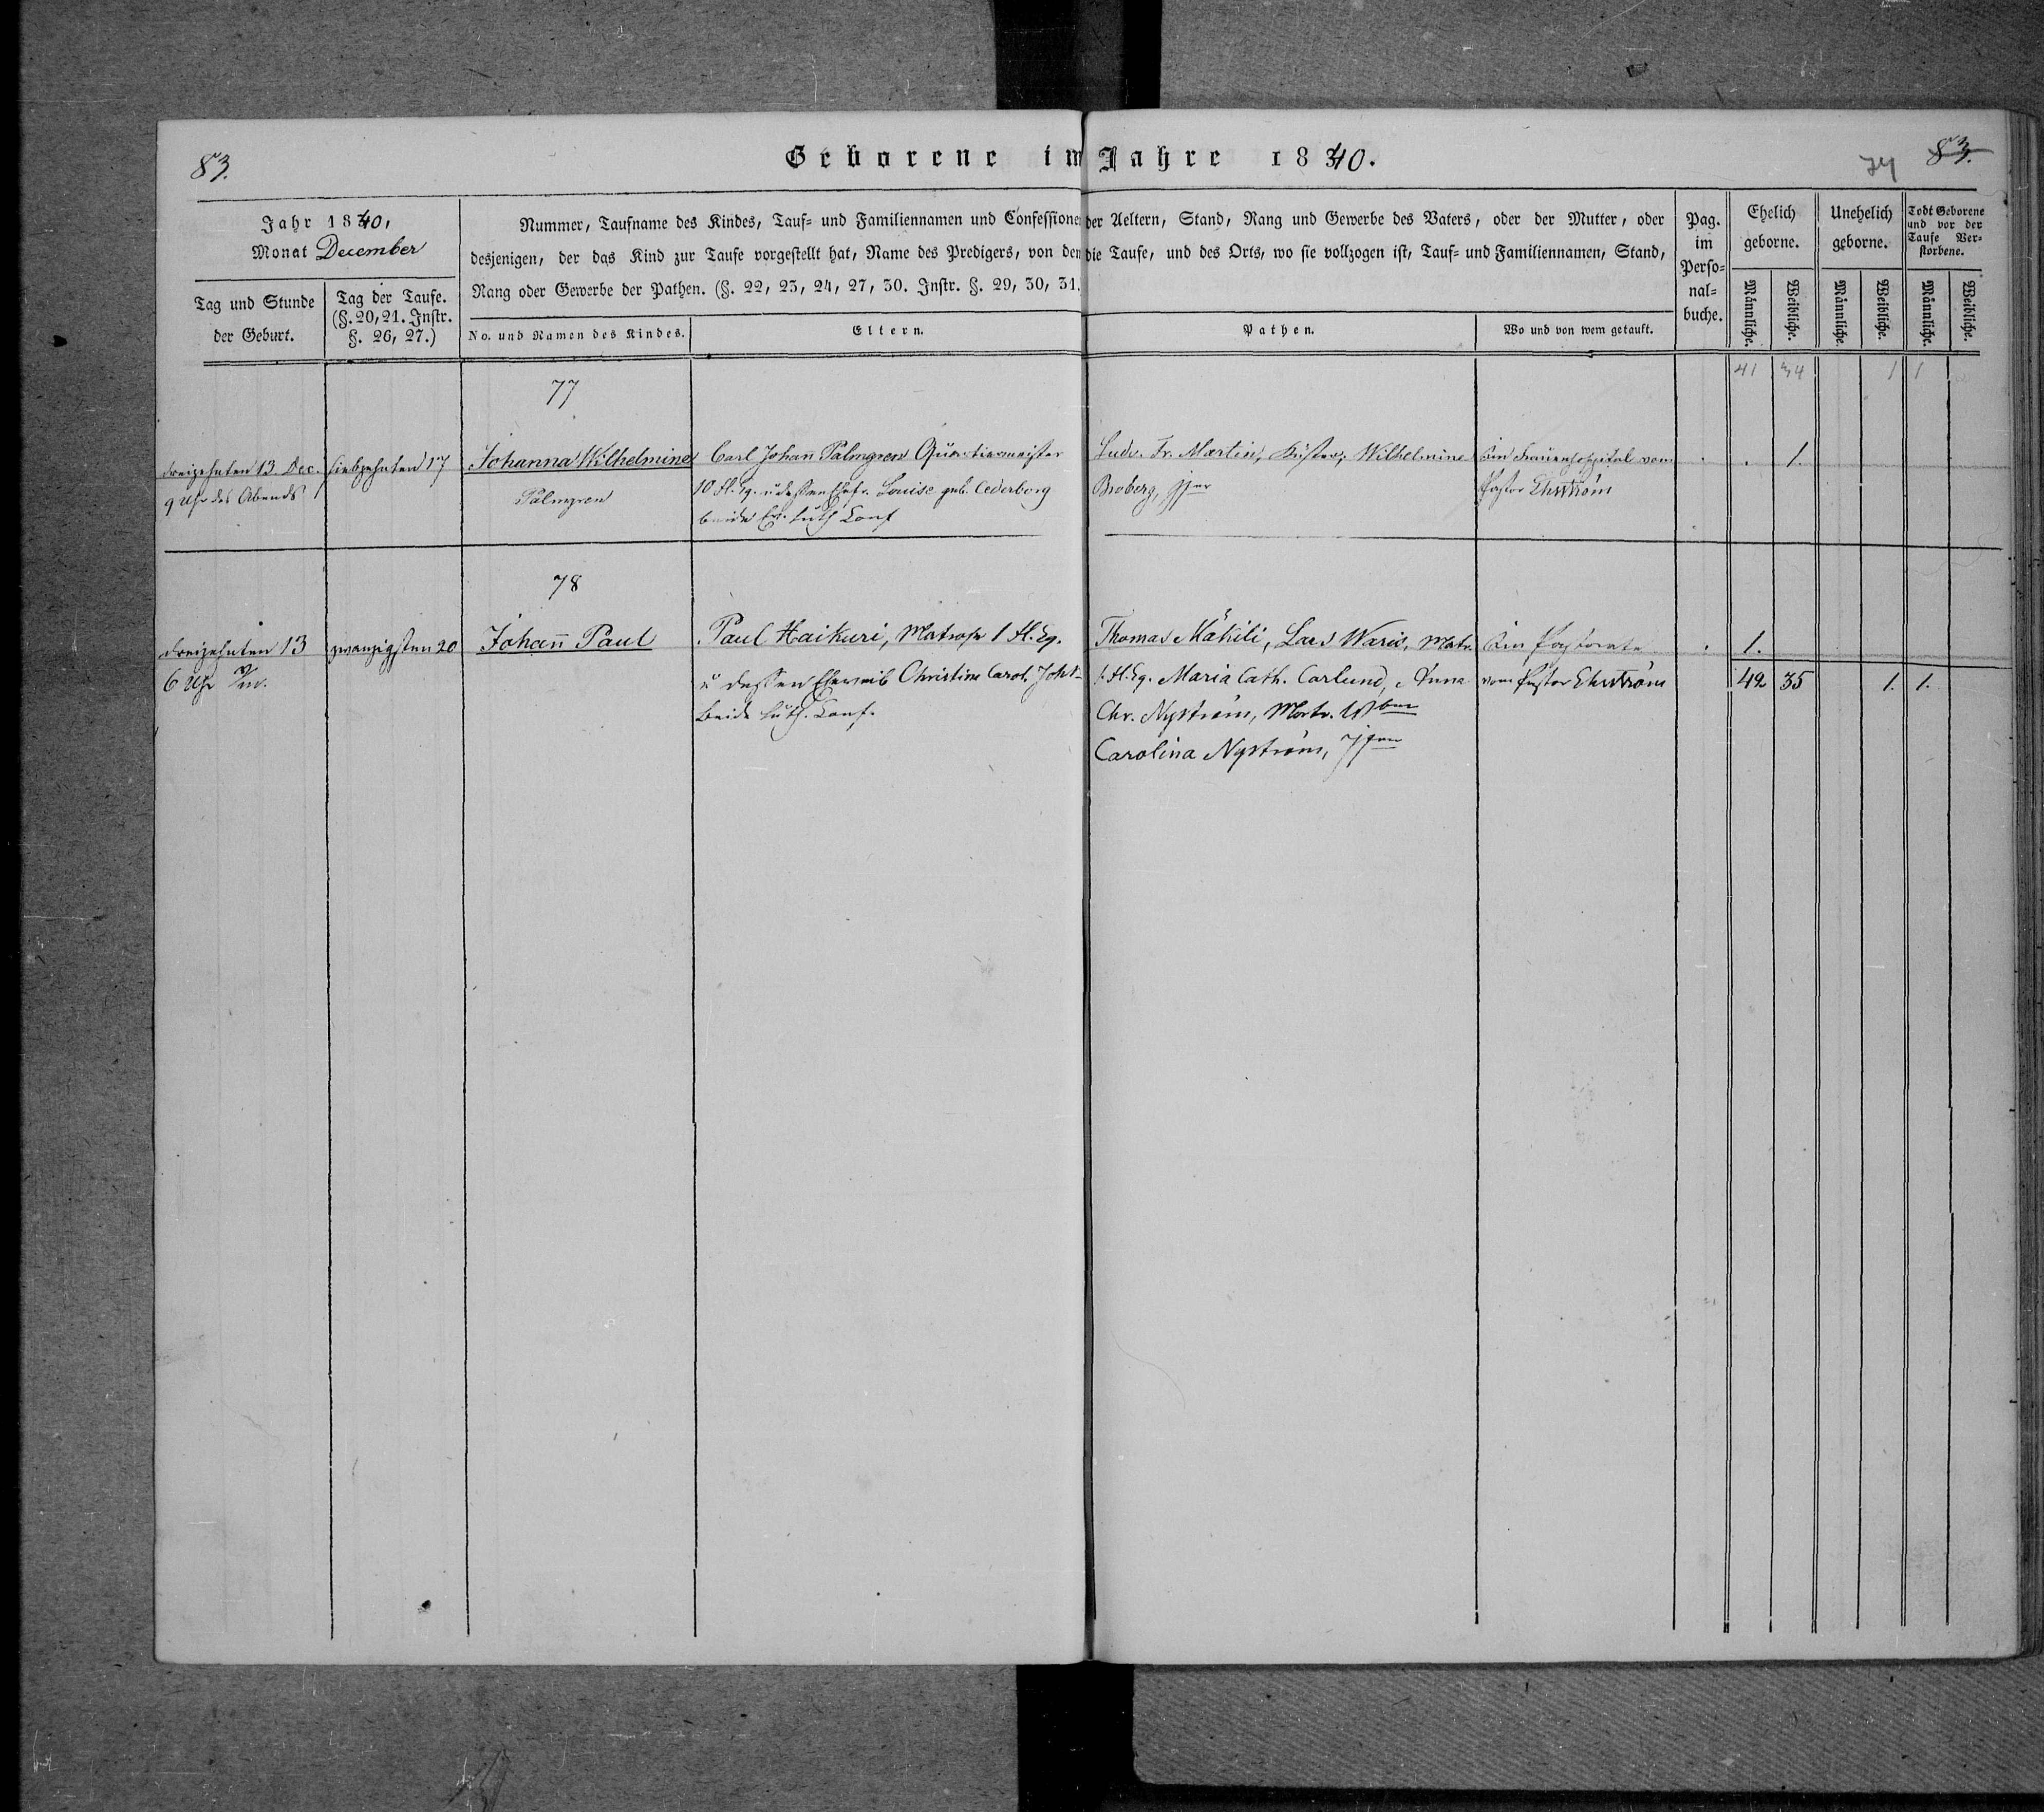 83.
Geborene im Jahre 1840.
74 83.
Jahr 1840,
Monat December
Tag und Stunde
der Geburt.
Tag der Taufe.
(§. 20, 21. Instr.
§. 26, 27.)
Nummer, Taufname des Kindes, Tauf= und Familiennamen und Confessionen der Aeltern, Stand, Rang und Gewerbe des Vaters, oder der Mutter, oder
desjenigen, der das Kind zur Taufe vorgestellt hat, Name des Predigers, von dem die Taufe, und des Orts, wo sie vollzogen ist, Tauf= und Familiennamen, Stand,
Rang oder Gewerbe der Pathen. (§. 22, 23, 24, 27, 30. Instr. §. 29, 30, 31.
No. und Namen des Kindes.
Eltern.
Pathen.
Wo und von wem getauft.
Pag.
im
Perso=
nal=
buche.
Ehelich
geborne.
Männliche.
Weibliche.
Unehelich
geborne.
Männliche.
Weibliche.
Todt Geborene
und vor der
Taufe Ver=
storbene.
Männliche.
Weibliche.
41 34 1 1
77
dreizehnten 13. Dec.
9 Uhr des Abends
siebzehnten 17
Johanna Wilhelmine
Palmgren
Carl Johan̄ Palmgren Quartiermeister
10 Fl. Eq. u dessen Ehefr. Louise geb. Cederborg
beide Ev. Luth Conf
Ludv. Fr. Martin, Küster, Wilhelmine
Broberg, Jfer
Im Frauenhospital vom
Pastor Ehrström
1.
78
dreizehnten 13
6 Uhr
zwanzigsten 20
Johan̄ Paul
Paul Haikuri, Matrose 1 Fl. Eq.
u dessen Eheweib Christine Carol.
Beide Luth. Conf.
Thomas Mäkili, Lars Waris, Matr.
1. Fl. Eq. Maria Cath. Carlund, Anna
Chr. Nyström, Matr.
Carolina Nyström, Jfer
Im Pastorate
vom Pastor Ehrström
1.
42 35 1. 1.